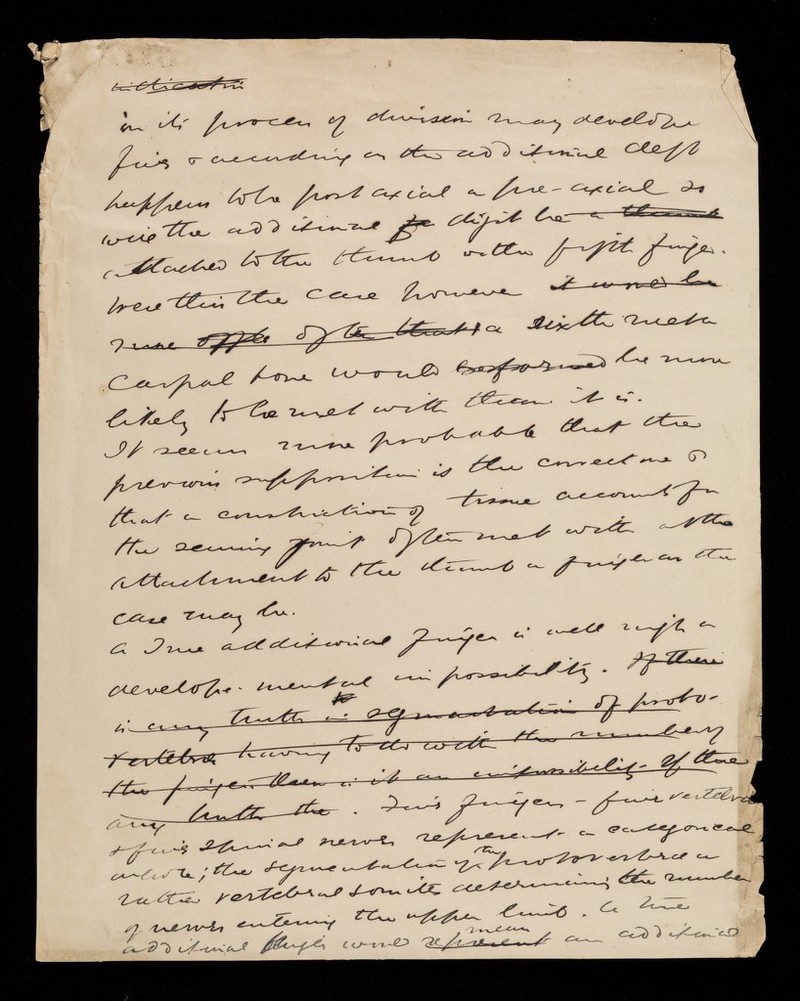 indication
in its process of division may develope
five & according as the additional cleft
happens to be post axial or pre-axial so
will the additional digit be a thumb
attached to the thumb or the fifth finger.
were this the case however it would be
more often that a sixth meta
carpal bone would be formed be more
likely to be met with than it is.
It seems more probable that the
previous supposition is the correct one &
that a constriction of tissue accounts for
the seeming joint often met with at the
attachment to the thumb or finger as the
case may be.
A True additional finger is well nigh a
develope-mental impossibility. If there
is any truth in segmentation of proto-
vertebrae having to do with the number of
the fingers then is it an impossibility. If there
any truth the. Five fingers - five vertebrae
& five spinal nerves represent a categorical
whole; the segmentation of the protovertebrae or
rather vertebral somites determining the number
of nerves entering the upper limb. A true
additional finger would represent mean an additional